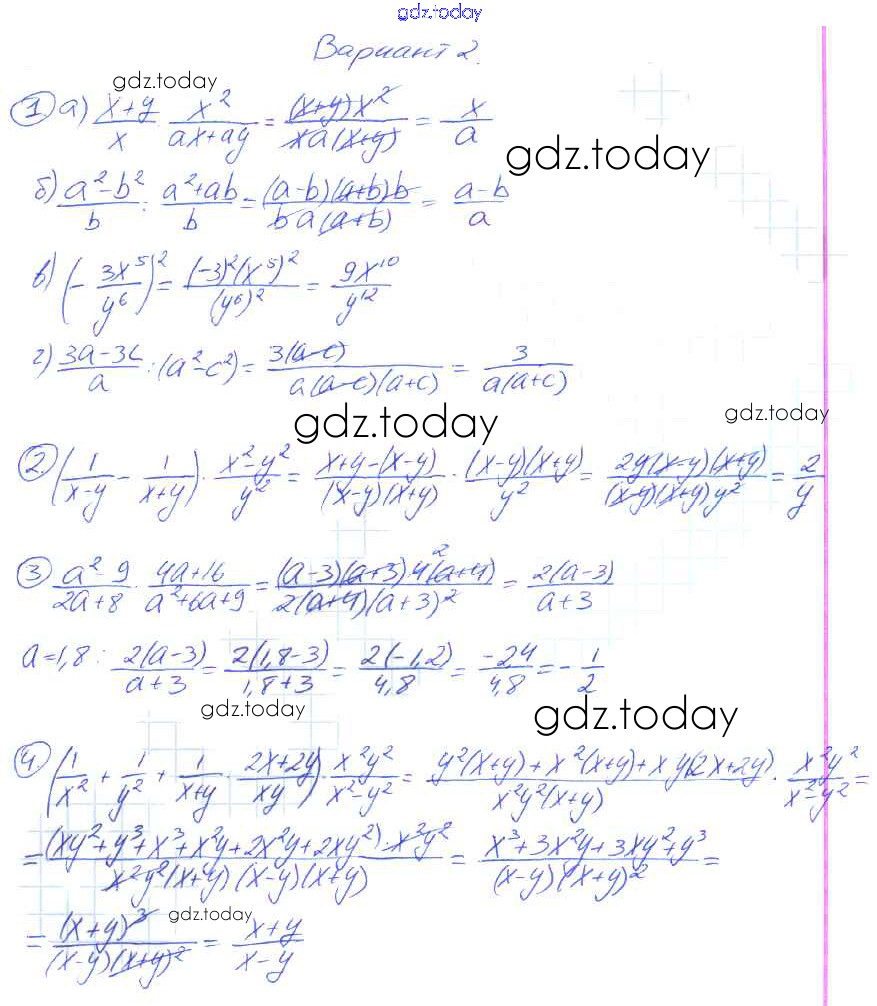 gdz.today
Вариант 2.
gdz.today
① а) (x+y)/x · x²/(ax+ay) = (x+y)x²/(xa(x+y)) = x/a
gdz.today
б) (a²-b²)/b : (a²+ab)/b = (a-b)(a+b)b/(ba(a+b)) = (a-b)/a
в) (-3x⁵/y⁶)² = (-3)²(x⁵)²/(y⁶)² = 9x¹⁰/y¹²
г) (3a-3c)/a : (a²-c²) = 3(a-c)/(a(a-c)(a+c)) = 3/(a(a+c))
gdz.today gdz.today
② (1/(x-y) - 1/(x+y)) · (x²-y²)/y² = (x+y-(x-y))/((x-y)(x+y)) · (x-y)(x+y)/y² = 2y(x-y)(x+y)/((x-y)(x+y)y²) = 2/y
③ (a²-9)/(2a+8) · (4a+16)/(a²+6a+9) = (a-3)(a+3)4²(a+4)/(2(a+4)(a+3)²) = 2(a-3)/(a+3)
a=1,8: 2(a-3)/(a+3) = 2(1,8-3)/(1,8+3) = 2(-1,2)/4,8 = -24/4,8 = -1/2
gdz.today gdz.today
④ (1/x² + 1/y² + 1/(x+y) · (2x+2y)/(xy)) · x²y²/(x²-y²) = (y²(x+y)+x²(x+y)+xy(2x+2y))/(x²y²(x+y)) · x²y²/(x²-y²) =
= (xy²+y³+x³+x²y+2x²y+2xy²)·x²y²/(x²y²(x+y)(x-y)(x+y)) = (x³+3x²y+3xy²+y³)/((x-y)(x+y)²) =
gdz.today
= (x+y)³/((x-y)(x+y)²) = (x+y)/(x-y)